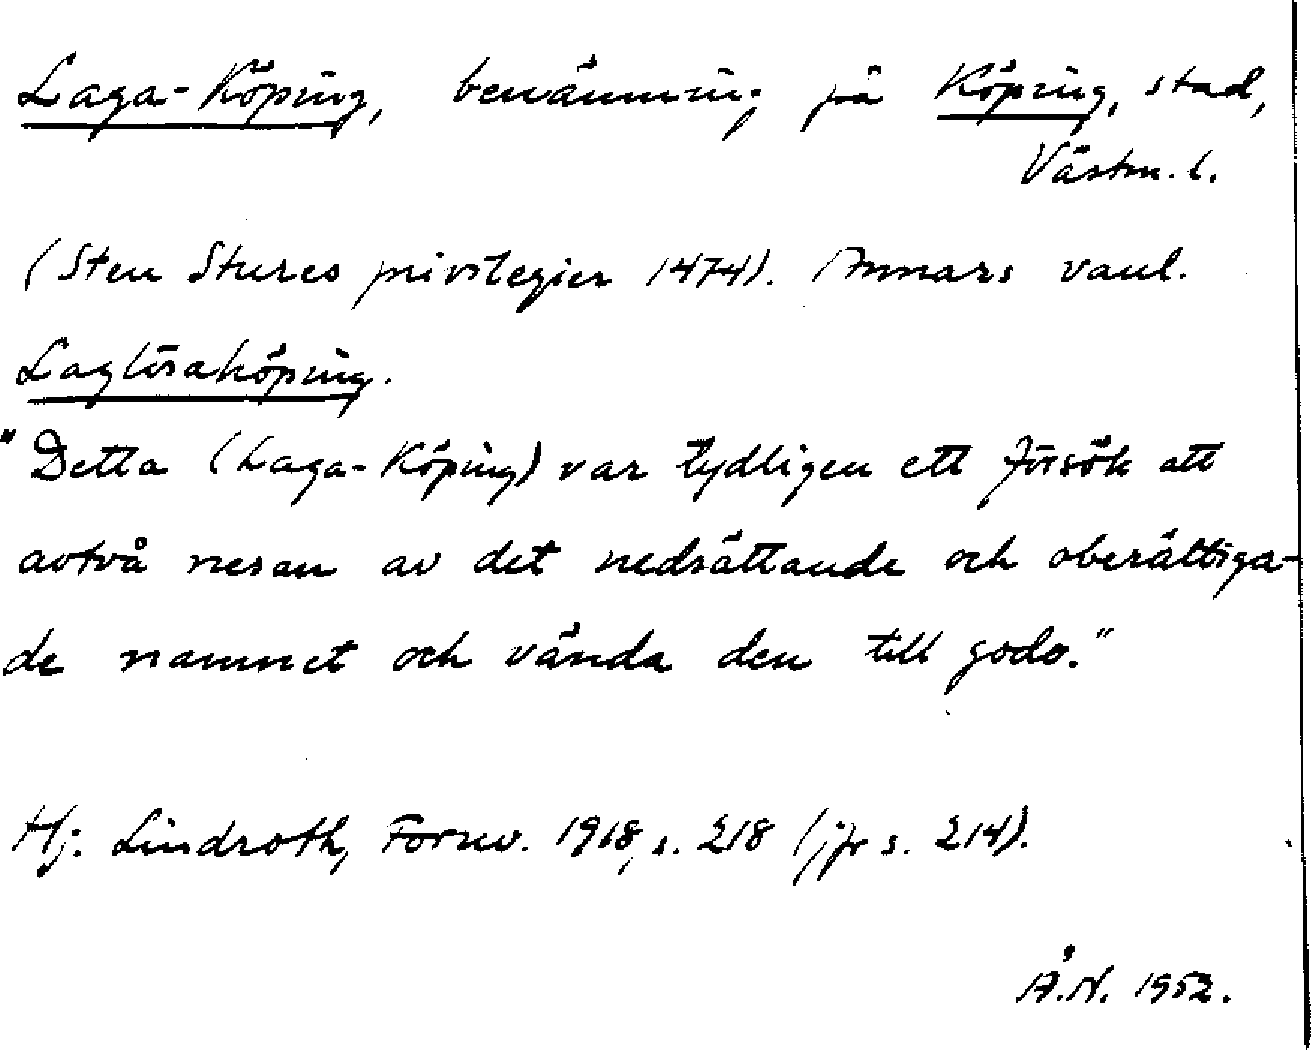 Laga-Köping, benämning på Köping, stad,
Västm. l.
(Sten Stures privilegier 1474). Annars vanl.
Laglösaköping.
"Detta (Laga-Köping) var tydligen ett försök att
avtvå nesan av det nedsättande och oberättiga-
de namnet och vända den till godo."
Hj. Lindroth, Fornv. 1918, s. 218 (jfr s. 214).
Å.N. 1952.